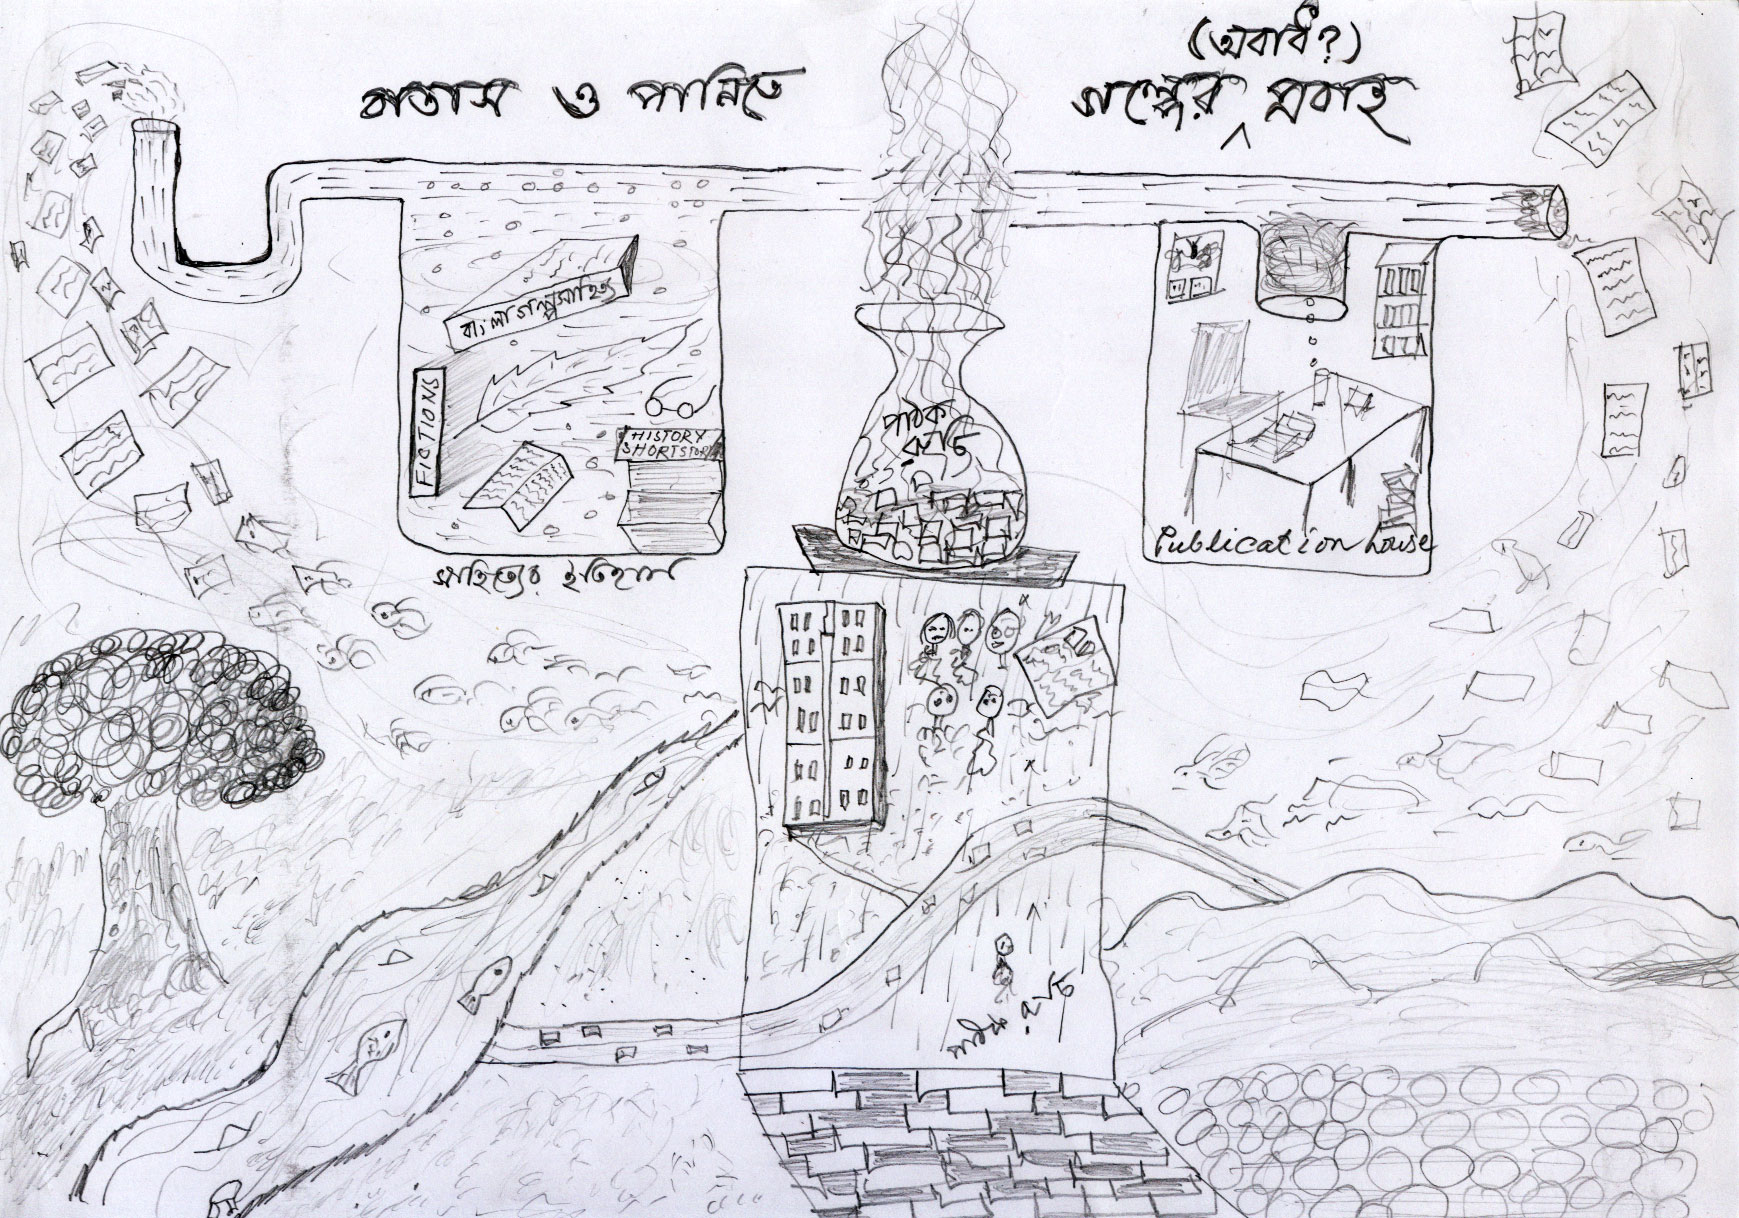 বাতাস ও পানিতে
(অবাধ?)
গল্পের ^ প্রবাহ
বাংলা গল্পসাহিত্য
FICTIONS
HISTORY
SHORTSTORY
সাহিত্যের ইতিহাস
পাঠক
Publication house